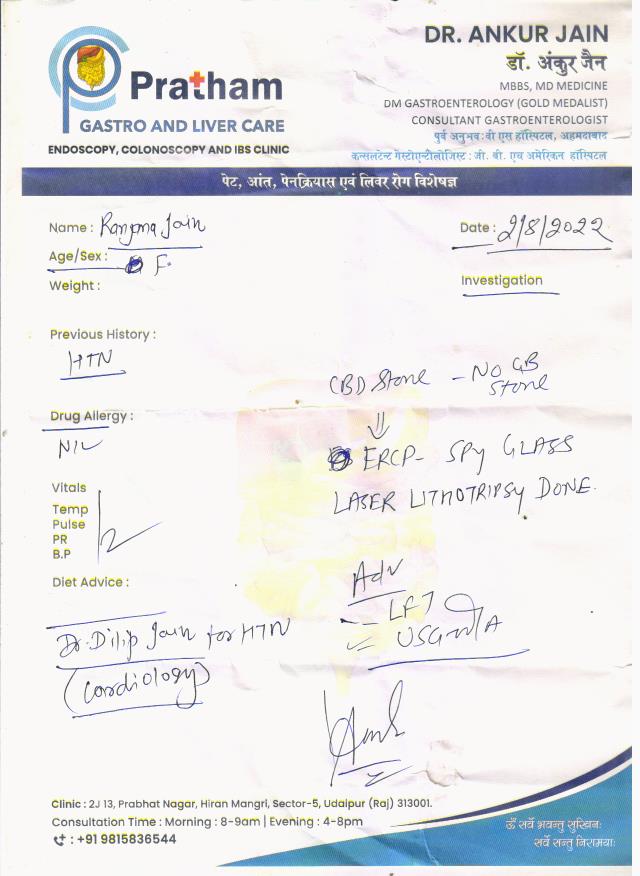 DR. ANKUR JAIN
डॉ. अंकुर जैन
MBBS, MD MEDICINE
DM GASTROENTEROLOGY (GOLD MEDALIST)
CONSULTANT GASTROENTEROLOGIST
पुर्व अनुभव: वी एस हॉस्पिटल, अहमदाबाद
कन्सलटेन्ट गेस्टोएन्टोलोजिस्ट : जी. बी. एच अमेरिकन हॉस्पिटल
Pratham
GASTRO AND LIVER CARE
ENDOSCOPY, COLONOSCOPY AND IBS CLINIC
पेट, आंत, पेनक्रियास एवं लिवर रोग विशेषज्ञ
Name : Ranjana Jain
Date : 2/8/2022
Age/Sex : F.
Weight :
Investigation
Previous History :
HTN
CBD Stone - No GB
Stone
Drug Allergy :
NIL
⇓
ERCP- SPY GLASS
LASER LITHOTRIPSY DONE.
Vitals
Temp
Pulse
PR
B.P
Diet Advice :
Adv
LFT
USG W/A
Dr. Dilip Jain for HTN
(Cardiology)
Clinic : 2J 13, Prabhat Nagar, Hiran Mangri, Sector-5, Udaipur (Raj) 313001.
Consultation Time : Morning : 8-9am | Evening : 4-8pm
: +91 9815836544
ॐ सर्वे भवन्तु सुखिनः
सर्वे सन्तु निरामयाः